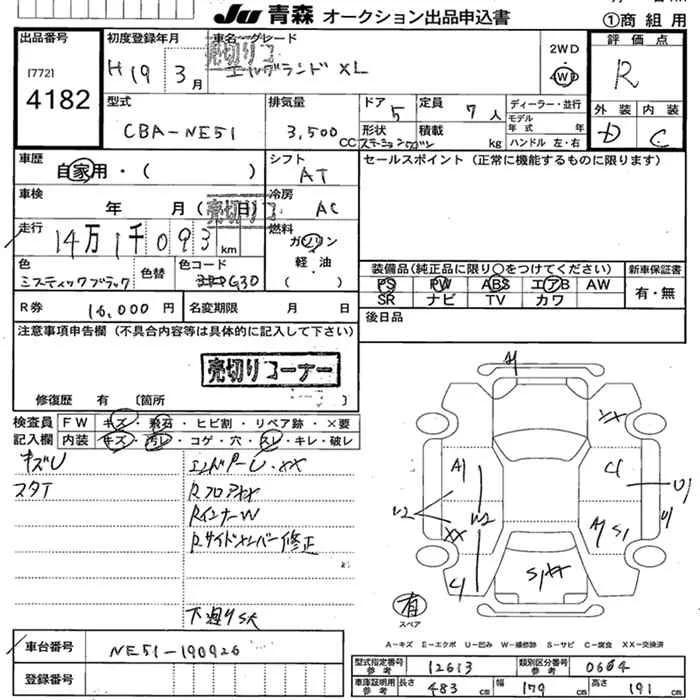 JU 青森 オークション出品申込書 ①商組用
出品番号 初度登録年月 車名・グレード 2WD 評価点
17721 H19 3月 売切り エルグランド XL 4WD R
4182
型式 排気量 ドア 5 定員 7人 ディーラー・並行 外装 内装
CBA-NE51 3,500CC 形状 ステーションワゴン 積載 kg モデル年式 年式 ハンドル 左・右 D C
車歴 シフト セールスポイント (正常に機能するものに限ります)
自家用・( ) AT
車検 冷房
年 月 (売切り日) AC
走行 燃料
14万1千093km ガソリン
軽油
( )
色 色替 色コード 装備品(純正品に限り○をつけてください) 新車保証書
ミスティックブラック G30 PS PW ABS エアB AW 有・無
SR ナビ TV カワ
R券 16,000円 名変期限 月 日 後日品
注意事項申告欄 (不具合内容等は具体的に記入して下さい)
売切りコーナー
修復歴 有 〔箇所 〕
検査員 FW キズ・飛石・ヒビ割・リペア跡・×要
記入欄 内装 キズ・汚レ・コゲ・穴・スレ・キレ・破レ
キズU エンドパーU・XX
スタT RフロアXX
RインナーW
Rサイドメンバー修正
下廻りSK
A1
XX
A1 C1 U1
U2 W2 U1
XX A1 S1
C1 S1XX
有
スペア
A−キズ E−エクボ U−凹み W−補修跡 S−サビ C−腐食 XX−交換済
車台番号 NE51-190926
登録番号
型式指定番号 参考 12613 類別区分番号 参考 0664
車庫証明用 参考 長さ 483cm 幅 179cm 高さ 191cm